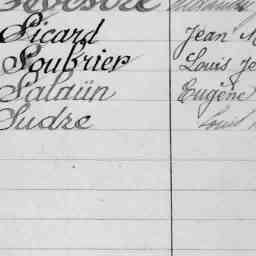 Picard Jean M
Soubrier Louis Je
Salaün Eugène
Sudre Louis